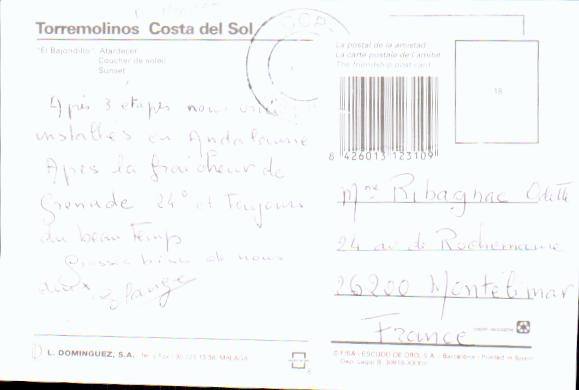 Torremolinos Costa del Sol
"El Bajondillo". Atardecer
Coucher de soleil
Sunset
Après 3 etapes nous
installés en Andalousie
Apres la fraicheur de
Grenade 24° et Toujours
du beau Temps
Grosses bises de nous
deux
L. DOMINGUEZ, S.A.
MALAGA
La postal de la amistad
La carte postale de l'amitié
The friendship post card
18
8 426013 123109
Mme Ribagnac Odette
24 av de Rochemaure
26200 Montélimar
France
© FISA - ESCUDO DE ORO, S.A. - Barcelona - Printed in Spain